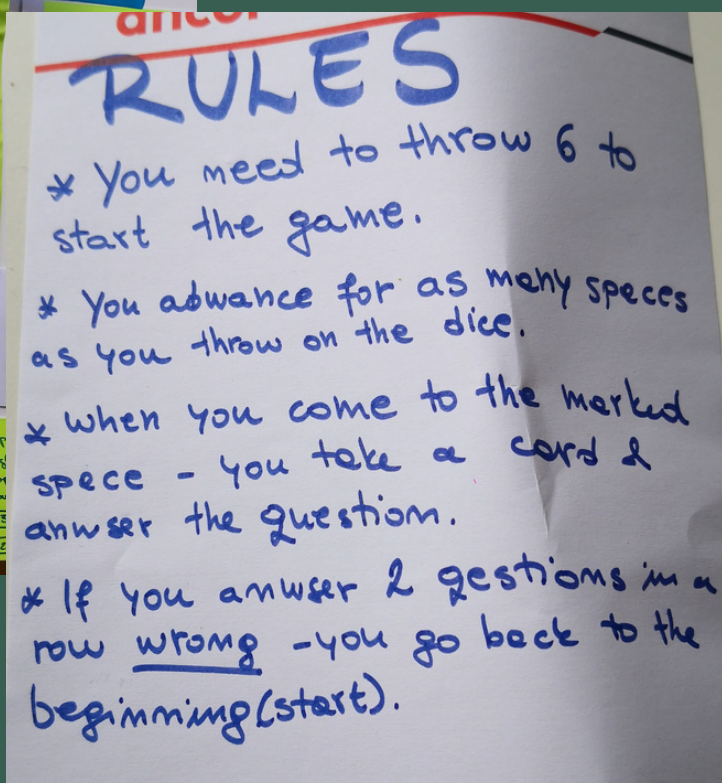 RULES
* You need to throw 6 to
start the game.
* You adwance for as many speces
as you throw on the dice.
* When you come to the marked
spece - you take a card &
anwser the question.
* If you anwser 2 qestions in a
row wrong - you go back to the
beginning (start).